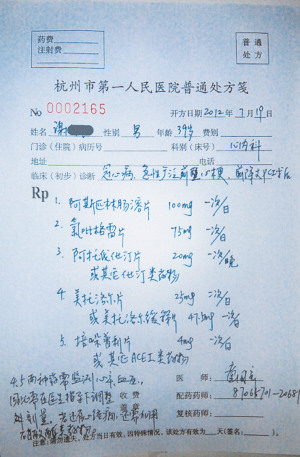 药费
注射费
普通
处方
杭州市第一人民医院普通处方笺
No 0002165 开方日期 2012年7月19日
姓名 谢 性别 男 年龄 39岁 费别
门诊(住院)病历号 科别(床号) 心内科
地址 电话
临床(初步)诊断 冠心病 急性广泛前壁心梗 前降支PCI术后
Rp
1. 阿斯匹林肠溶片 100mg 一次/日
2. 氯吡格雷片 75mg 一次/日
3. 阿托伐他汀片 20mg 一次/晚
或其它他汀类药物
4. 美托洛尔片 25mg 二次/日
或美托洛尔缓释片 47.5mg 一次/日
5. 培哚普利片 4mg 一次/日
或其它ACEI类药物
4.5两种药需监测心率,血压,
医师:
在医生指导下调整
收费
配药药师: 87065701-20681
处剂量
复核药师:
注意:请勿遗失,处方当日有效,因特殊情况,该处方有效为 天(签名: )。